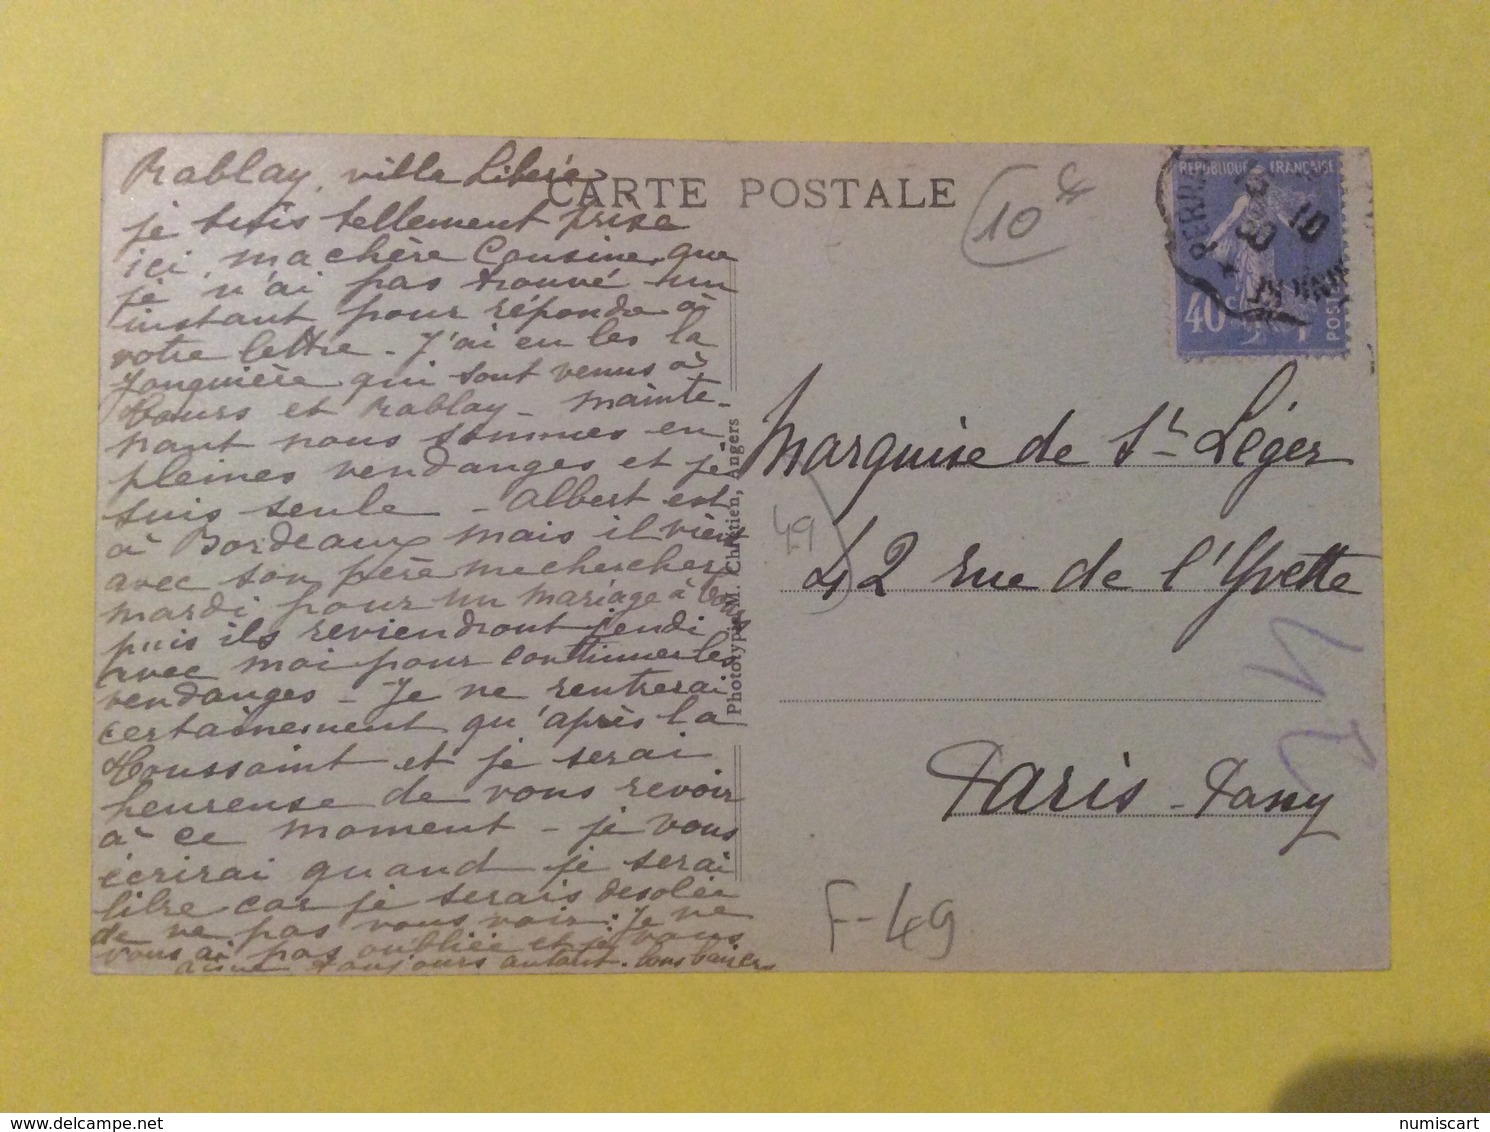 Rablay, ville Libéré
CARTE POSTALE
je suis tellement prise
ici, ma chère Cousine, que
je n'ai pas trouvé un
instant pour répondre à
votre lettre - J'ai eu les la
Jonquière qui sont venus à
Tours et Rablay - mainte-
nant nous sommes en
pleines vendanges et je
suis seule - Albert est
à Bordeaux mais il vient
avec son père me chercher
mardi pour un mariage à Tours
puis ils reviendront jeudi
avec moi pour continuer les
vendanges - Je ne rentrerai
certainement qu'après la
Toussaint et je serai
heureuse de vous revoir
à ce moment - je vous
écrirai quand je serai
libre car je serais désolée
de ne pas vous voir. Je ne
vous ai pas oubliée et je vous
aime toujours autant. bons baisers
Phototypie M. Chrétien, Angers
10 €
REPUBLIQUE FRANÇAISE
40 c
POSTES
10
30
Marquise de St Léger
49
42 rue de l'Yvette
Paris - Passy
F-49